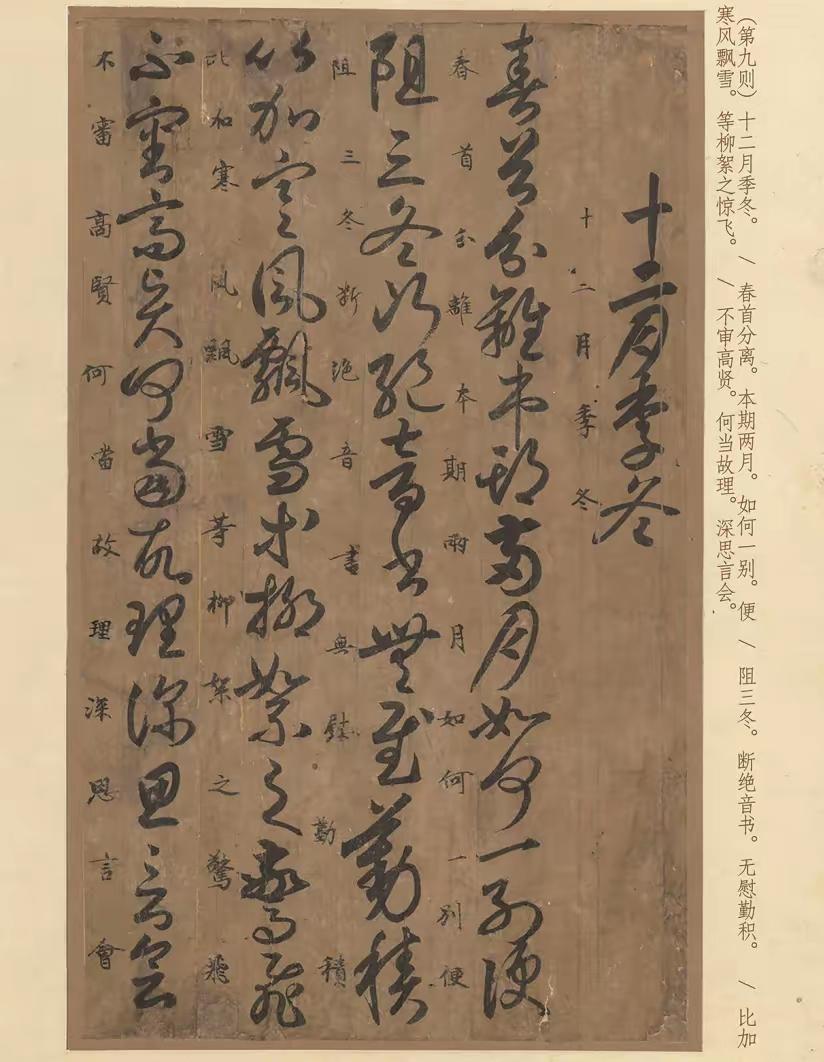 (第九则) 十二月季冬。 / 春首分离。本期两月。如何一别。便 / 阻三冬。断绝音书。无慰勤积。 / 比加
寒风飘雪。等柳絮之惊飞。 / 不审高贤。何当故理。深思言会。
十二月季冬
十二月季冬
春首分離本期兩月如何一别便
春首分離本期兩月如何一別便
阻三冬断絶音書無慰勤積
阻三冬断絶音書無慰勤積
比加寒風飄雪等柳絮之驚飛
比加寒風飄雪等柳絮之驚飛
不審高賢何當故理深思言會
不審高賢何當故理深思言會